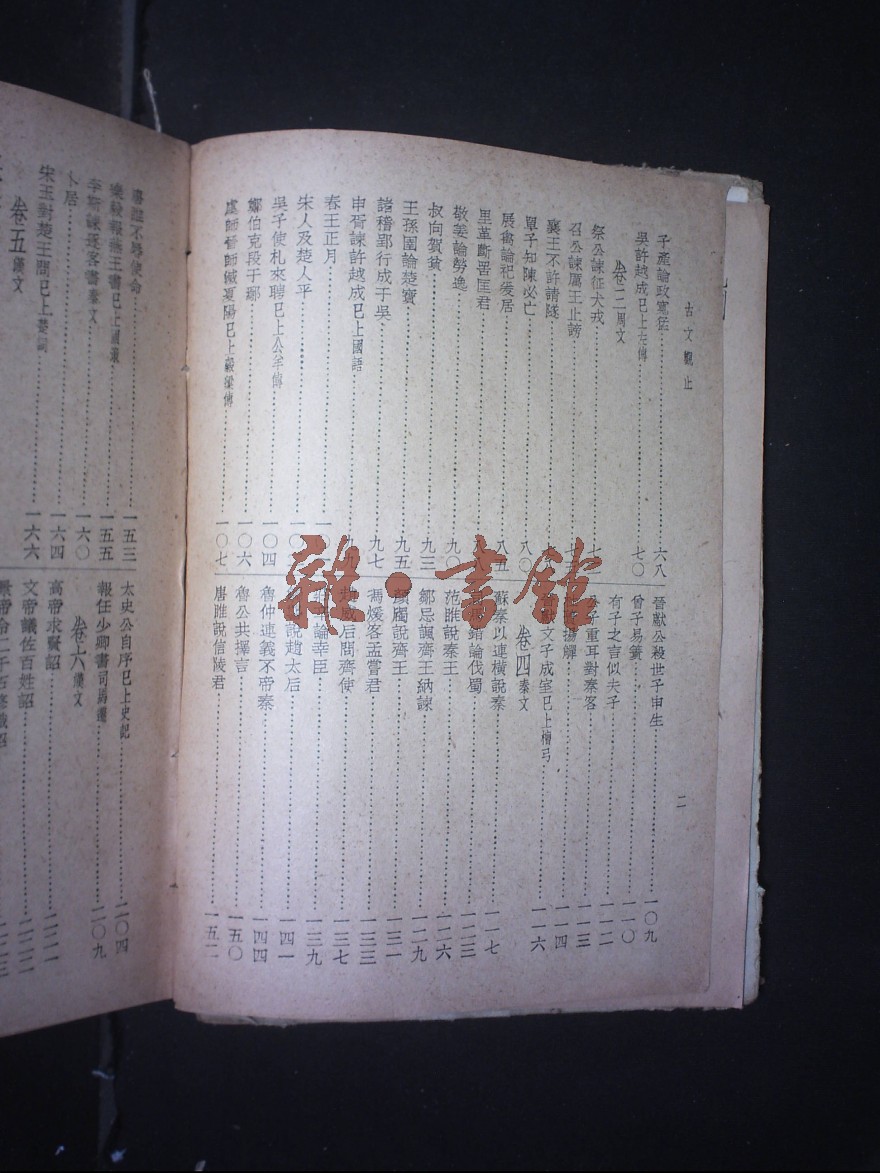 古文觀止
二
子產論政寬猛 六八
吳許越成已上左傳 七〇
卷三周文
祭公諫征犬戎 七
召公諫厲王止謗 七三
襄王不許請隧
單子知陳必亡 八〇
展禽論祀爰居 八五
里革斷罟匡君
敬姜論勞逸 九〇
叔向賀貧 九三
王孫圉論楚寶 九五
諸稽郢行成于吳 九七
申胥諫許越成已上國語 九九
春王正月 一〇
宋人及楚人平 一〇
吳子使札來聘已上公羊傳 一〇四
鄭伯克段于鄢 一〇六
虞師晉師滅夏陽已上穀梁傳 一〇七
晉獻公殺世子申生 一〇九
曾子易簀 一一〇
有子之言似夫子 一一二
公子重耳對秦客 一一三
揚觶 一一四
文子成室已上檀弓 一一六
卷四秦文
蘇秦以連橫說秦 一一七
錯論伐蜀 一二三
范雎說秦王 一二六
鄒忌諷齊王納諫 一二九
顏斶說齊王 一三一
馮煖客孟嘗君 一三三
威后問齊使 一三七
論幸臣 一三九
說趙太后 一四一
魯仲連義不帝秦 一四四
魯公共擇言 一五〇
唐雎說信陵君 一五二
唐雎不辱使命 一五三
樂毅報燕王書已上國策 一五五
李斯諫逐客書秦文 一六〇
卜居 一六四
宋玉對楚王問已上楚詞 一六六
卷五漢文
太史公自序已上史記 二〇四
報任少卿書司馬遷 二〇九
卷六漢文
高帝求賢詔
文帝議佐百姓詔
景帝令二千石修職詔
雜·書館